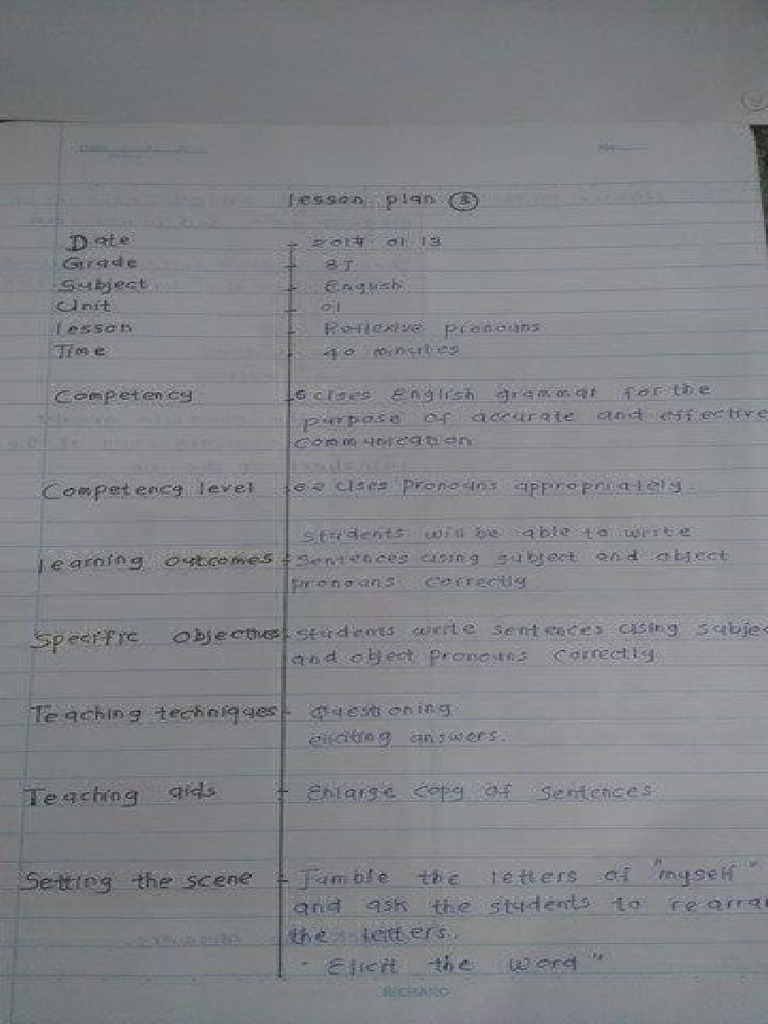 lesson plan ③
Date - 2014 01 13
Grade - 8J
Subject - English
Unit - 01
lesson - Reflexive pronouns
Time - 40 minutes
Competency - 6 Uses English grammar for the
purpose of accurate and effective
communication
Competency level - 6.2 Uses pronouns appropriately.
students will be able to write
learning outcomes - sentences using subject and object
pronouns correctly
Specific objectives - students write sentences using subjec
and object pronouns correctly
Teaching techniques - Questioning
eliciting answers.
Teaching aids - Enlarge copy of sentences
Setting the scene - Jumble the letters of "myself"
and ask the students to rearran
the letters.
- Elicit the word "
RICHARD